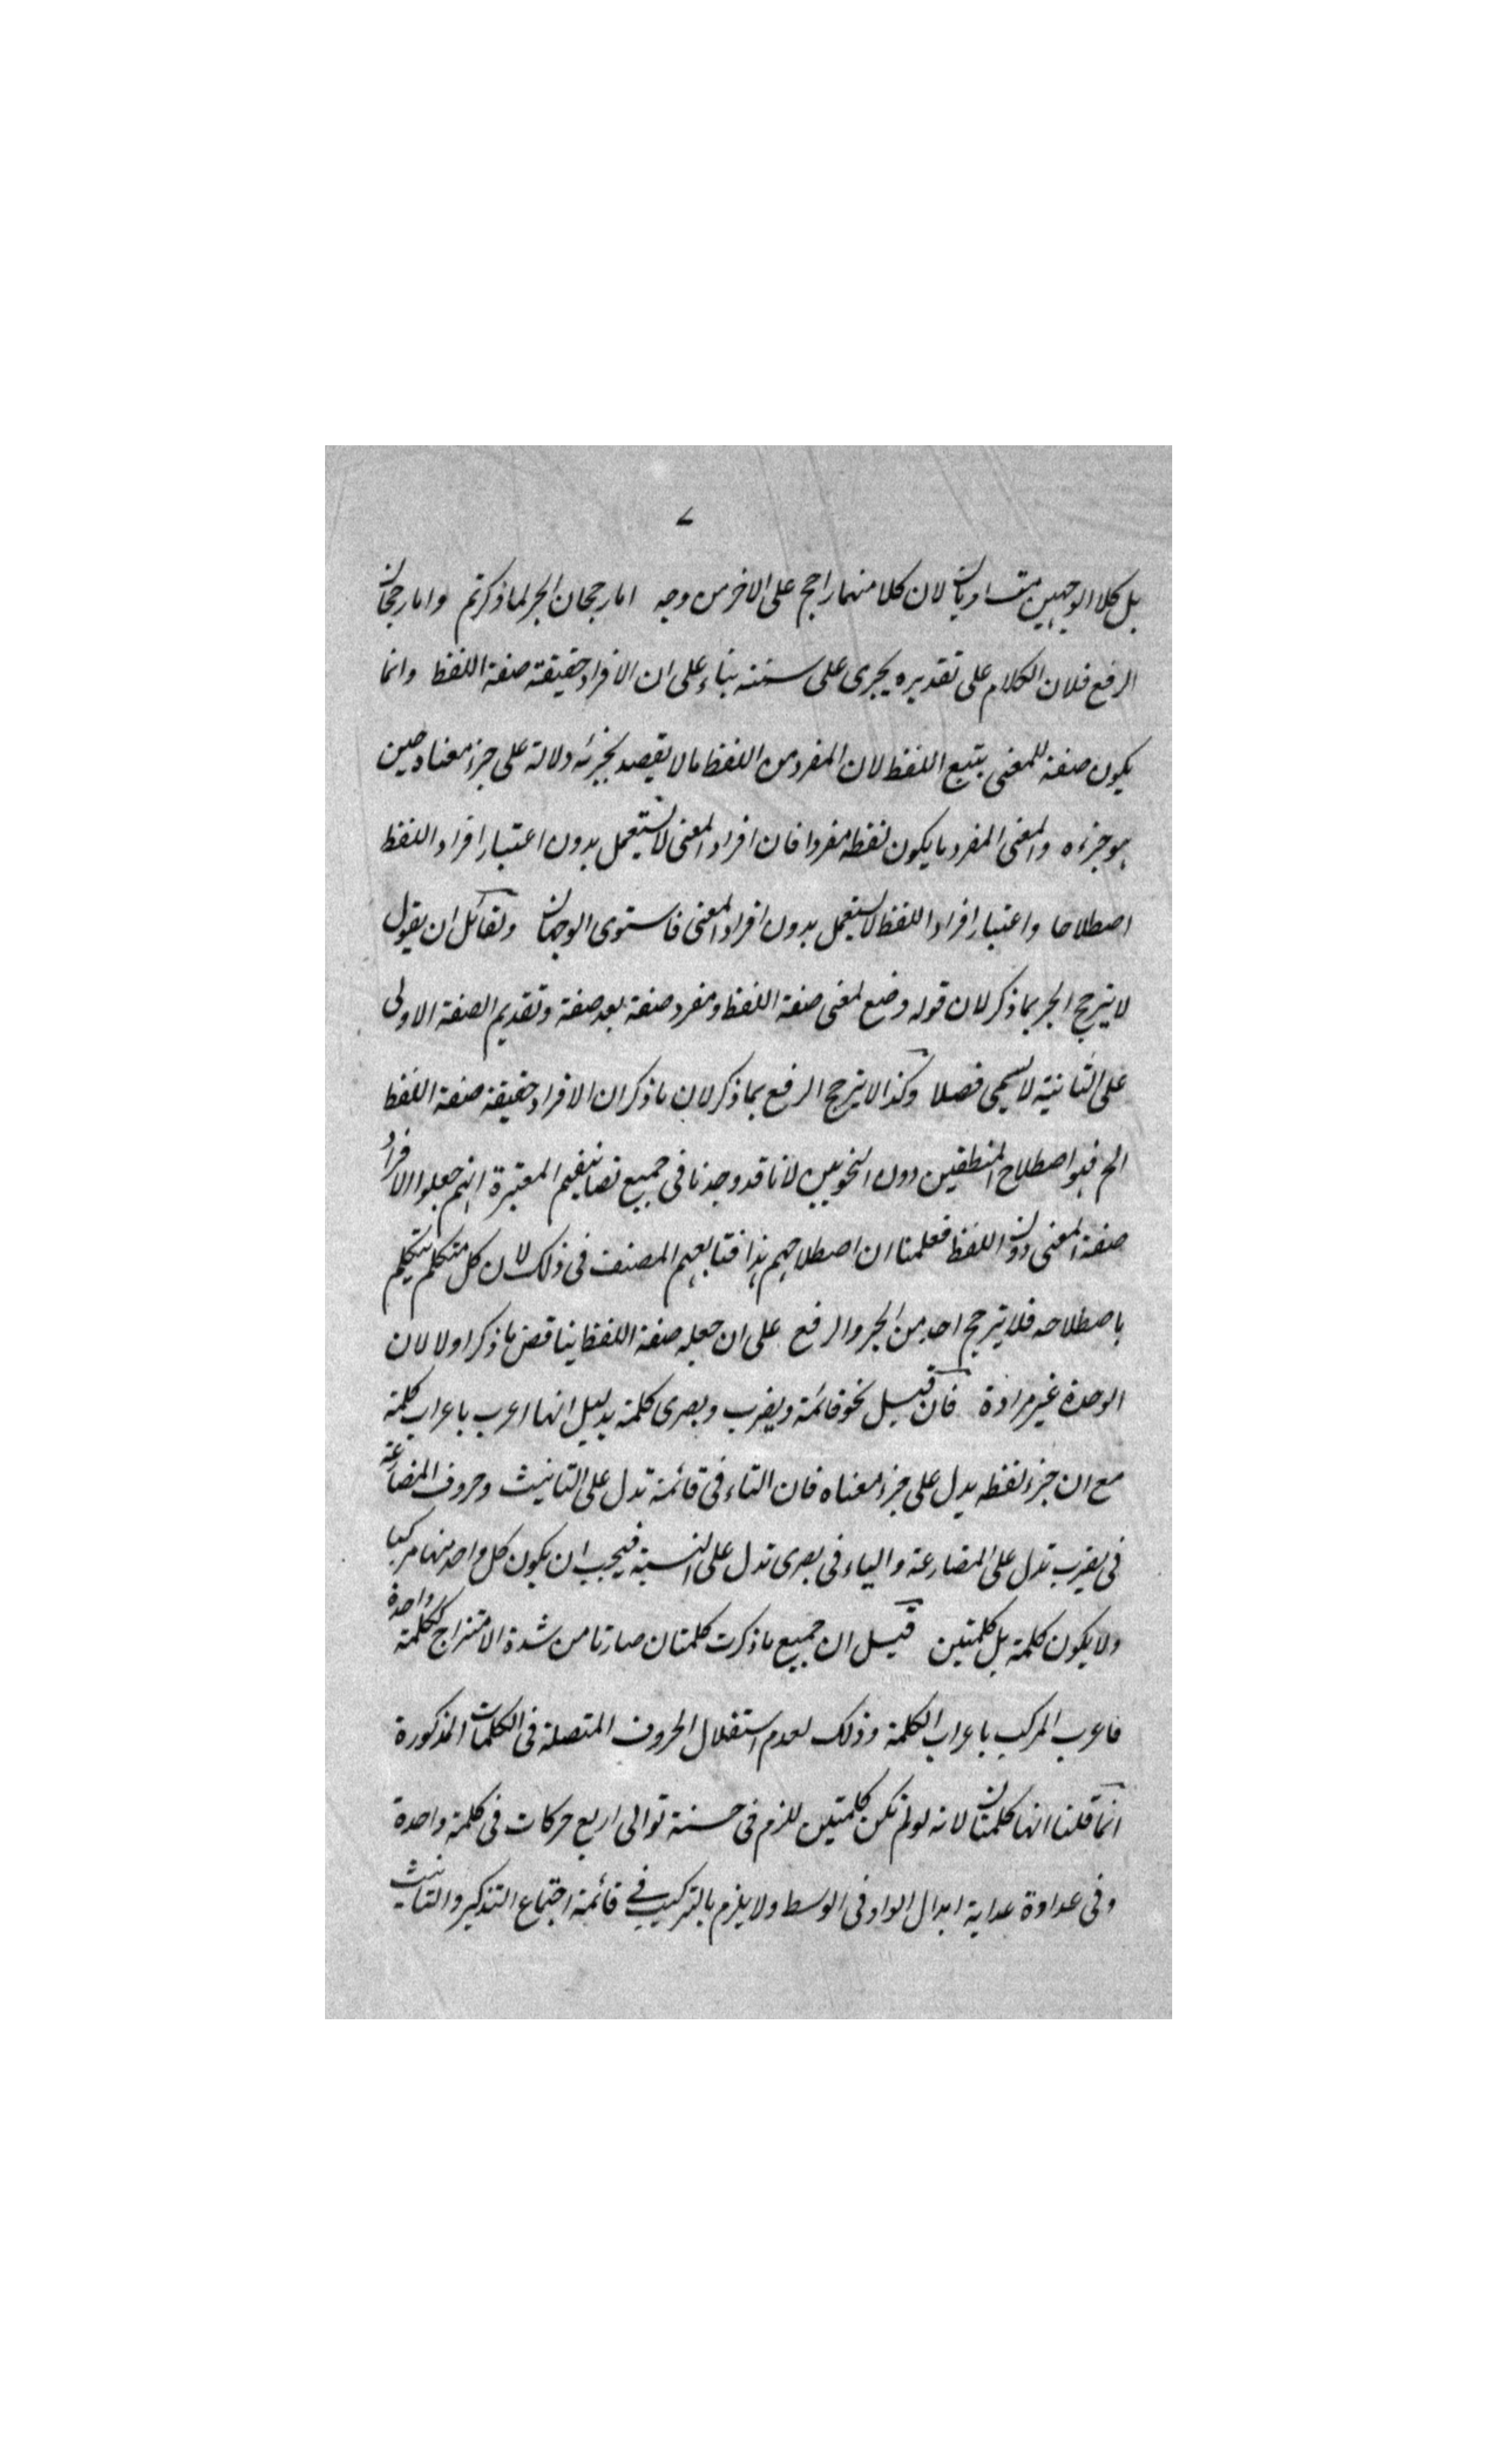 ٧
بل كلا الوجهين متساويان لان كلا منهما راجح على الاخر من وجه اما رجحان الجر لما ذكرتم واما رجحان
الرفع فلان الكلام على تقديره يجرى على سننه بناء على ان الافراد حقيقته صفة اللفظ وانما
يكون صفة للمعنى بتبع اللفظ لان المفرد من اللفظ مالا يقصد بجزئه دلالة على جزء معناه حين
هو جزءه والمعنى المفرد ما يكون لفظه مفردا فان افراد المعنى لا يستعمل بدون اعتبار افراد اللفظ
اصطلاحا واعتبار افراد اللفظ لا يستعمل بدون افراد المعنى فاستوى الوجهان ولقائل ان يقول
لا يترجح الجر بما ذكر لان قوله وضع لمعنى صفة اللفظ ومفرد صفة بعد صفة وتقديم الصفة الاولى
على الثانية لا يسمى فصلا وكذا لا يترجح الرفع بما ذكر لان ما ذكر ان الافراد حقيقة صفة اللفظ
الخ فهو اصطلاح المنطقيين دون النحويين لانا قد وجدنا فى جميع تصانيفهم المعتبرة انهم جعلوا الافراد
صفة المعنى دون اللفظ فعلمنا ان اصطلاحهم هذا فتابعهم المصنف فى ذلك لان كل متكلم يتكلم
باصطلاحه فلا يترجح احد من الجر والرفع على ان جعله صفة اللفظ يناقض ما ذكر اولا لان
الوحدة غير مرادة فان قيل نحو قائمة ويضرب وبصرى كلمة بدليل انها اعرب باعراب كلمة
مع ان جزء لفظه يدل على جزء معناه فان التاء فى قائمة تدل على التانيث وحروف المضارعة
فى يضرب تدل على المضارعة والياء فى بصرى تدل على النسبة فيجب ان يكون كل واحد منها مركبا
ولا يكون كلمة بل كلمتين قيل ان جميع ما ذكرت كلمتان صارتا من شدة الامتزاج ككلمة واحدة
فاعرب المركب باعراب الكلمة وذلك لعدم استقلال الحروف المتصلة فى الكلمات المذكورة
انما قلنا انها كلمتان لانه لو لم تكن كلمتين للزم فى حسنة توالى اربع حركات فى كلمة واحدة
وفى عداوة عداية ابدال الواو فى الوسط ولا يلزم بالتركيب فى قائمة اجتماع التذكير والتانيث